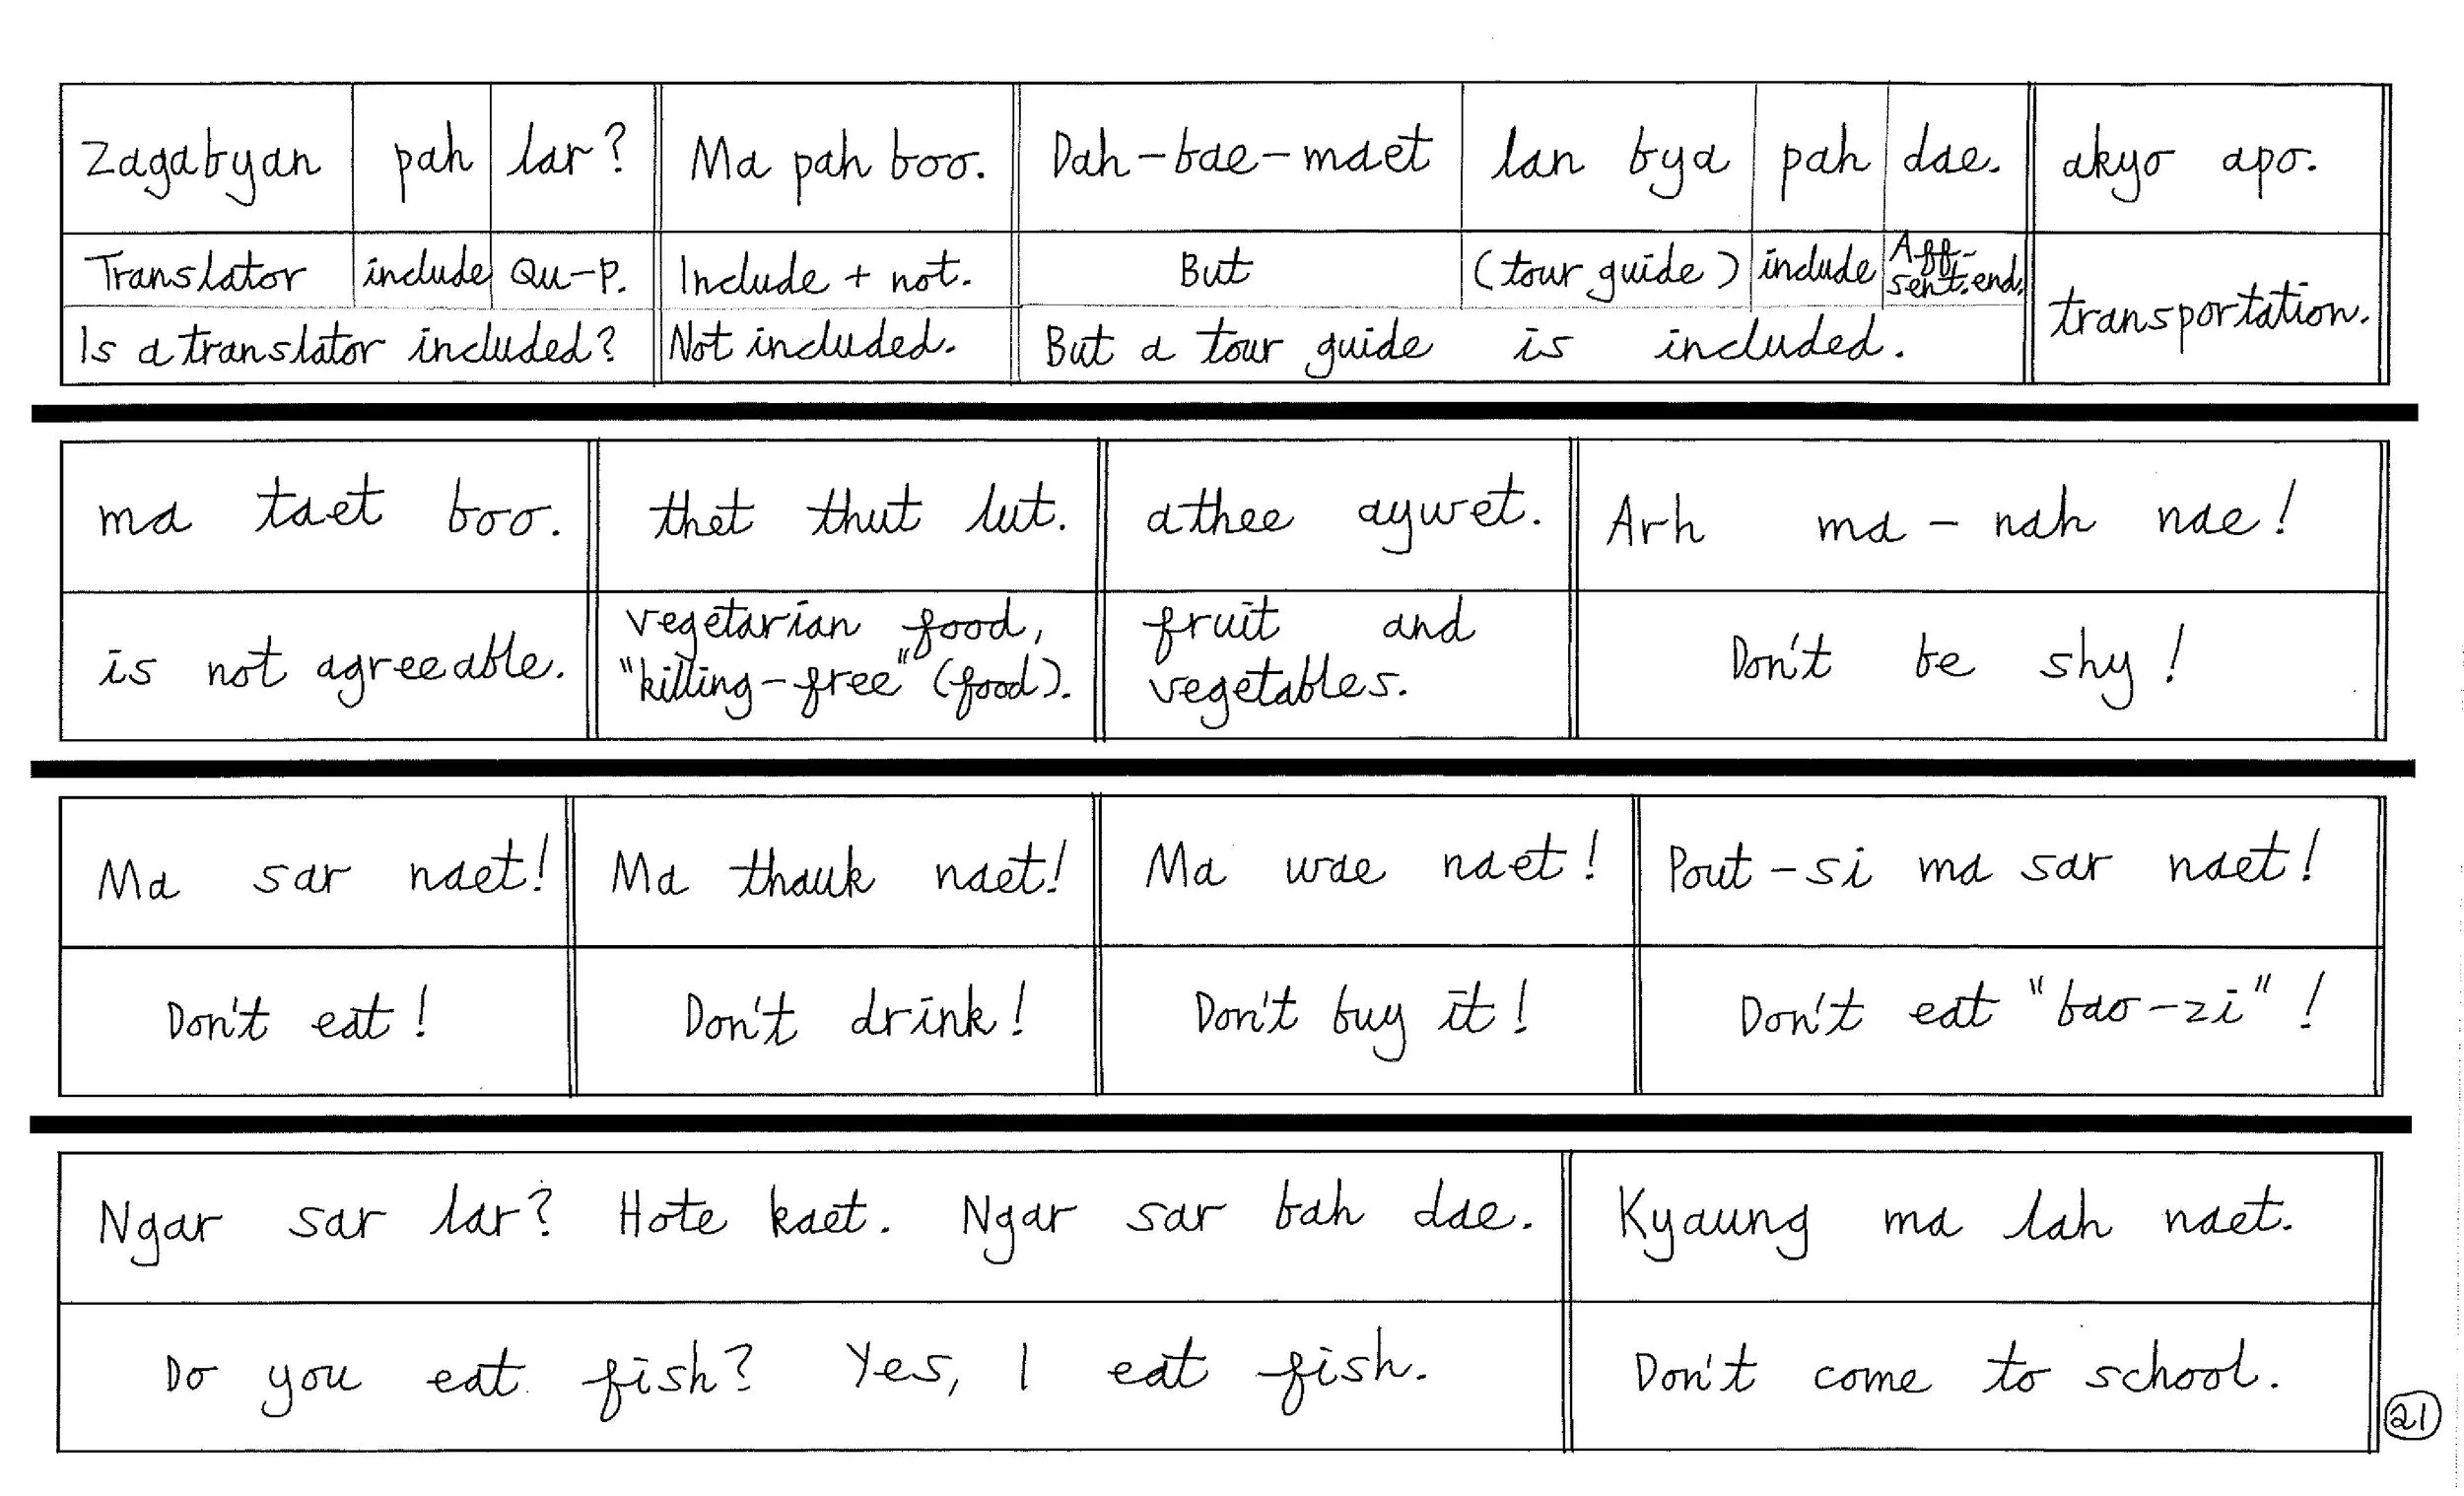 Zagabyan pah lar? Ma pah boo. Dah-bae-maet lan bya pah dae. akyo apo.
Translator include Qu-P. Include + not. But (tour guide) include Aff-sent.end. transportation.
Is a translator included? Not included. But a tour guide is included.
ma taet boo. thet thut lut. athee aywet. Arh ma-nah nae!
is not agreeable. vegetarian food, "killing-free" (food). fruit and vegetables. Don't be shy!
Ma sar naet! Ma thauk naet! Ma wae naet! Pout-si ma sar naet!
Don't eat! Don't drink! Don't buy it! Don't eat "bao-zi"!
Ngar sar lar? Hote kaet. Ngar sar bah dae. Kyaung ma lah naet.
Do you eat fish? Yes, I eat fish. Don't come to school.
21